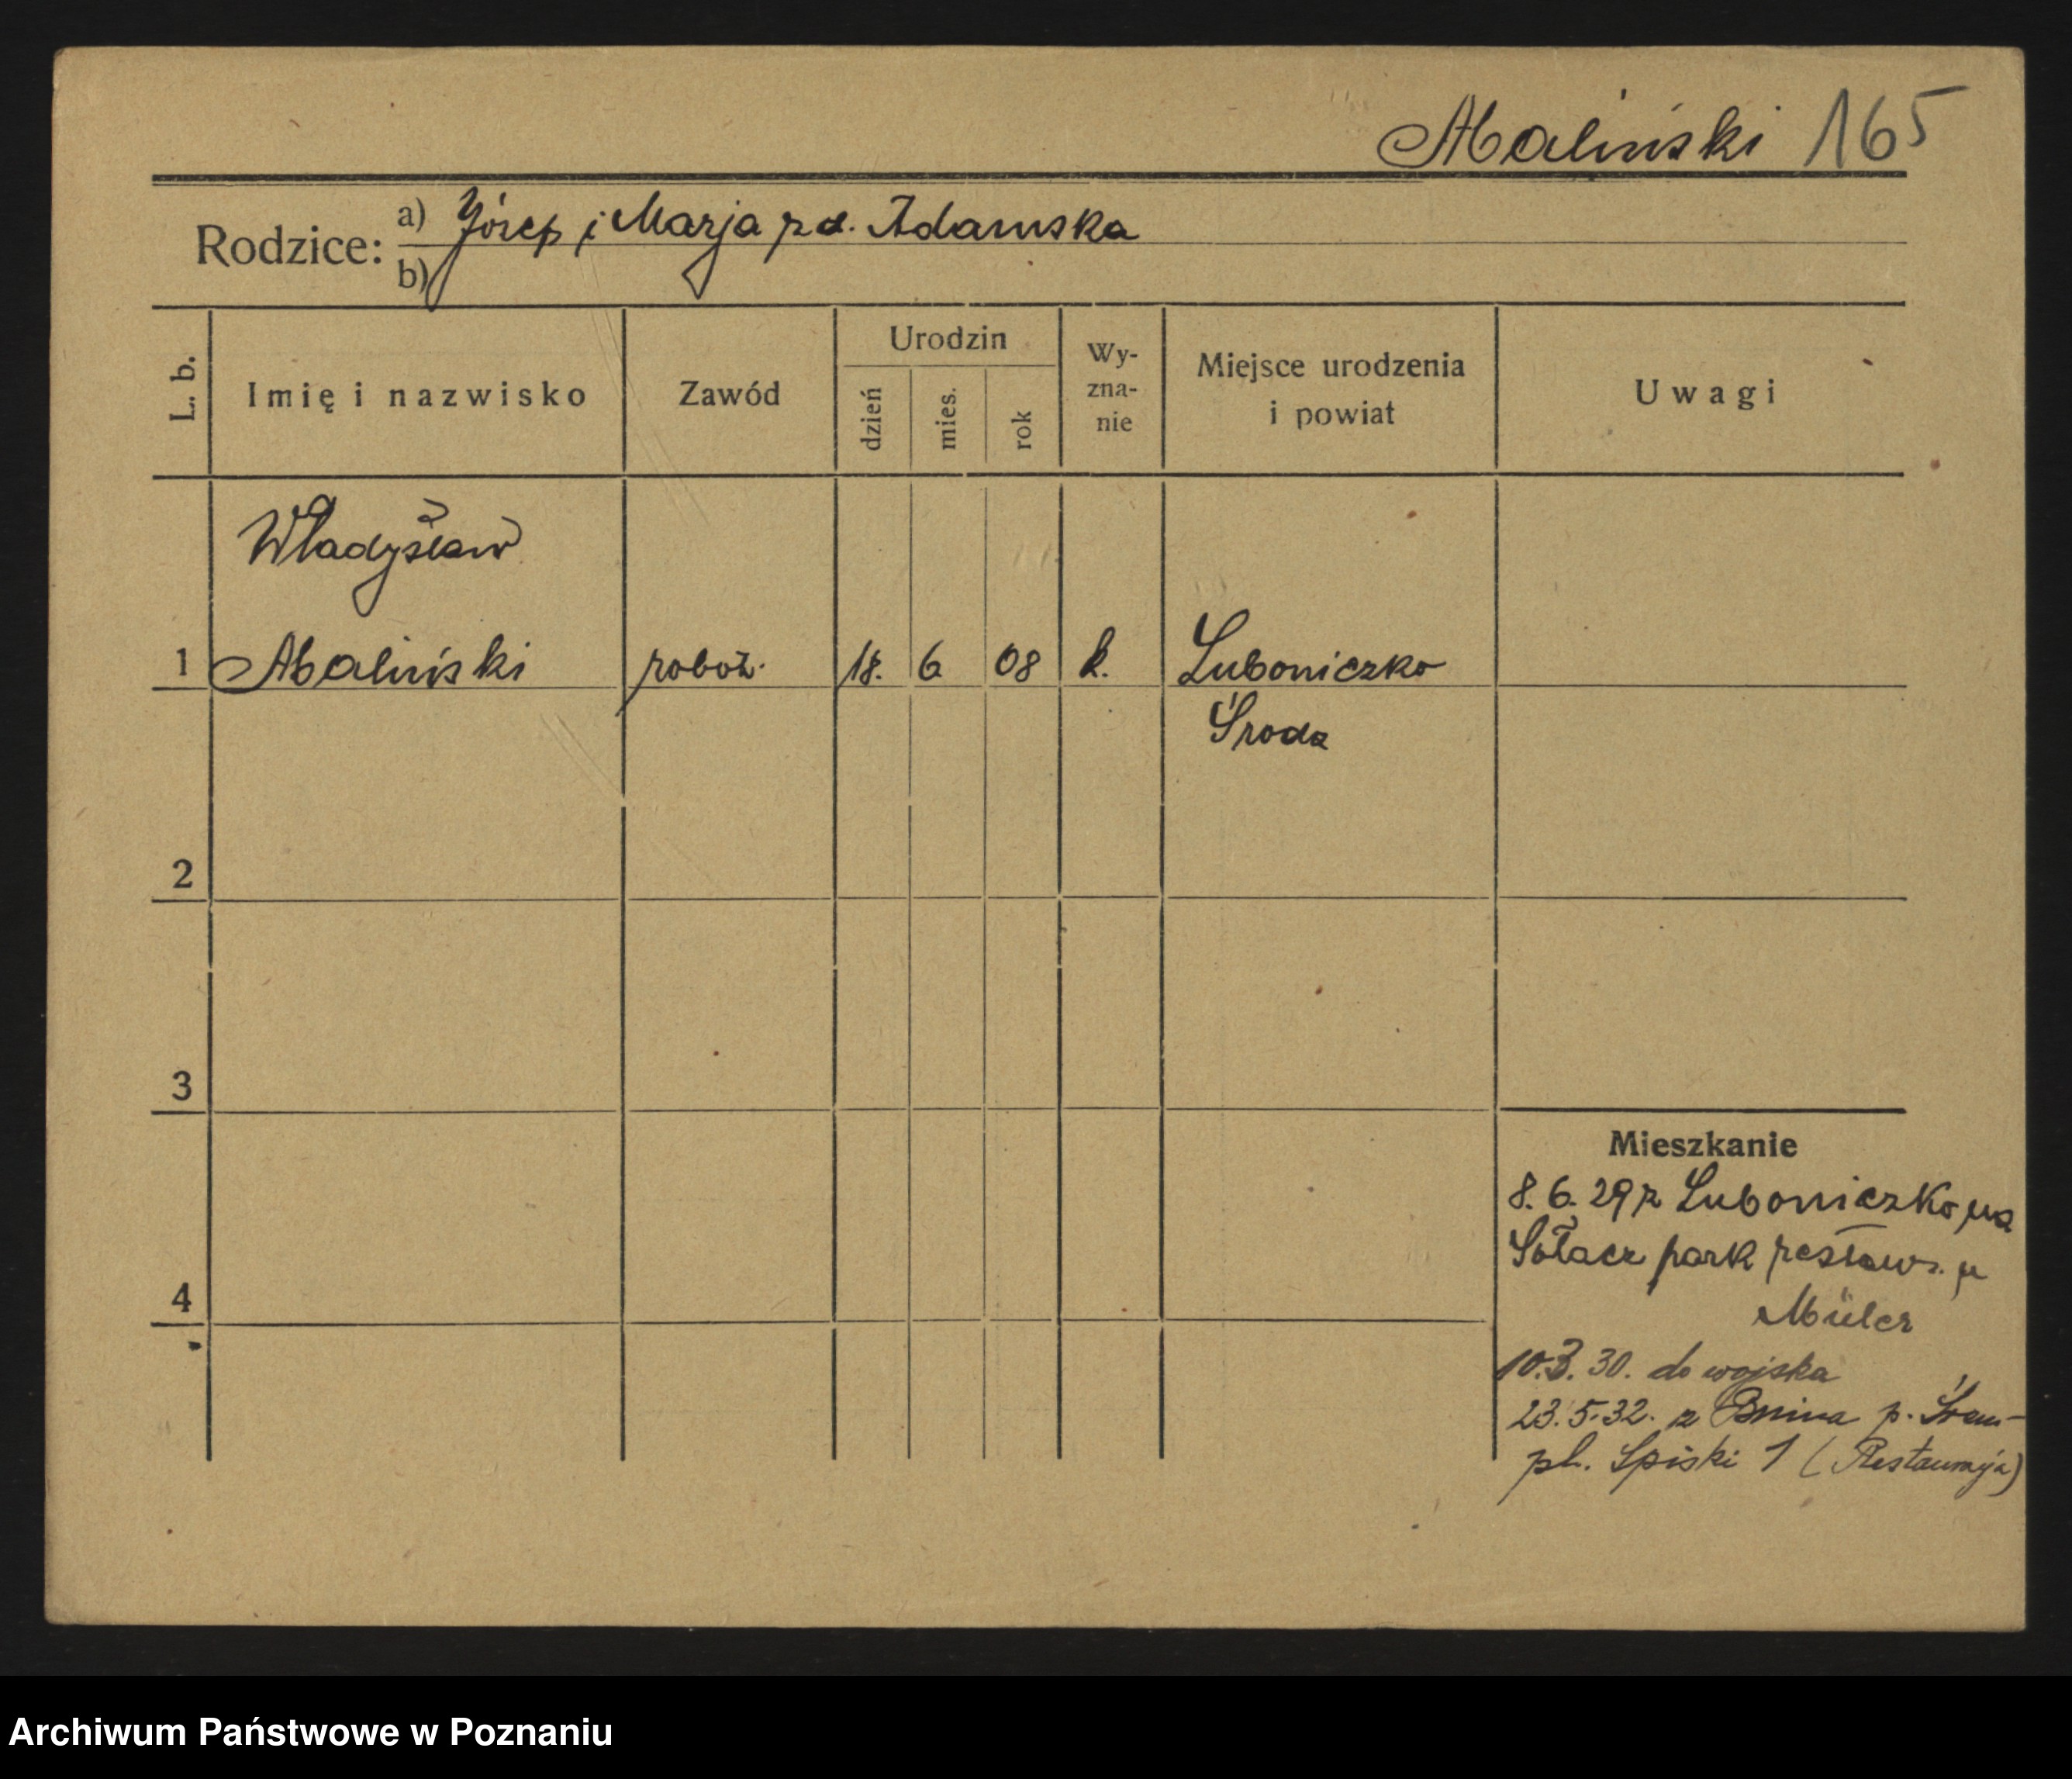 Maliński 165
Rodzice: a) Józef i Marja rd. Adamska
b)
L. b.
Imię i nazwisko
Zawód
Urodzin
dzień
mies.
rok
Wy-
zna-
nie
Miejsce urodzenia
i powiat
Uwagi
Władysław
1 Maliński robotn. 18. 6 08 k. Luboniczko
Środa
2
3
4
Mieszkanie
8. 6. 29 z Luboniczko na
Sołacz park restaur. u
Müler
10.3.30. do wojska
23.5.32. z Bnina p. Śrem-
pl. Spiski 1 (Restauracja)
Archiwum Państwowe w Poznaniu